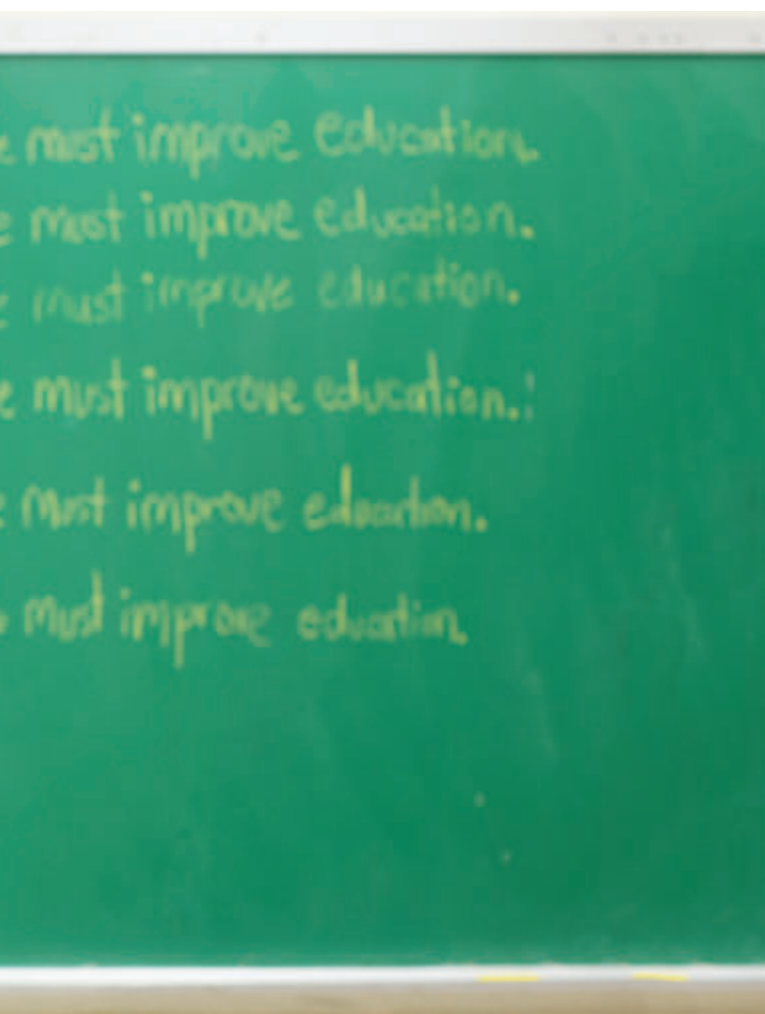 e must improve education.
e must improve education.
e must improve education.
e must improve education.
e must improve education.
must improve education.